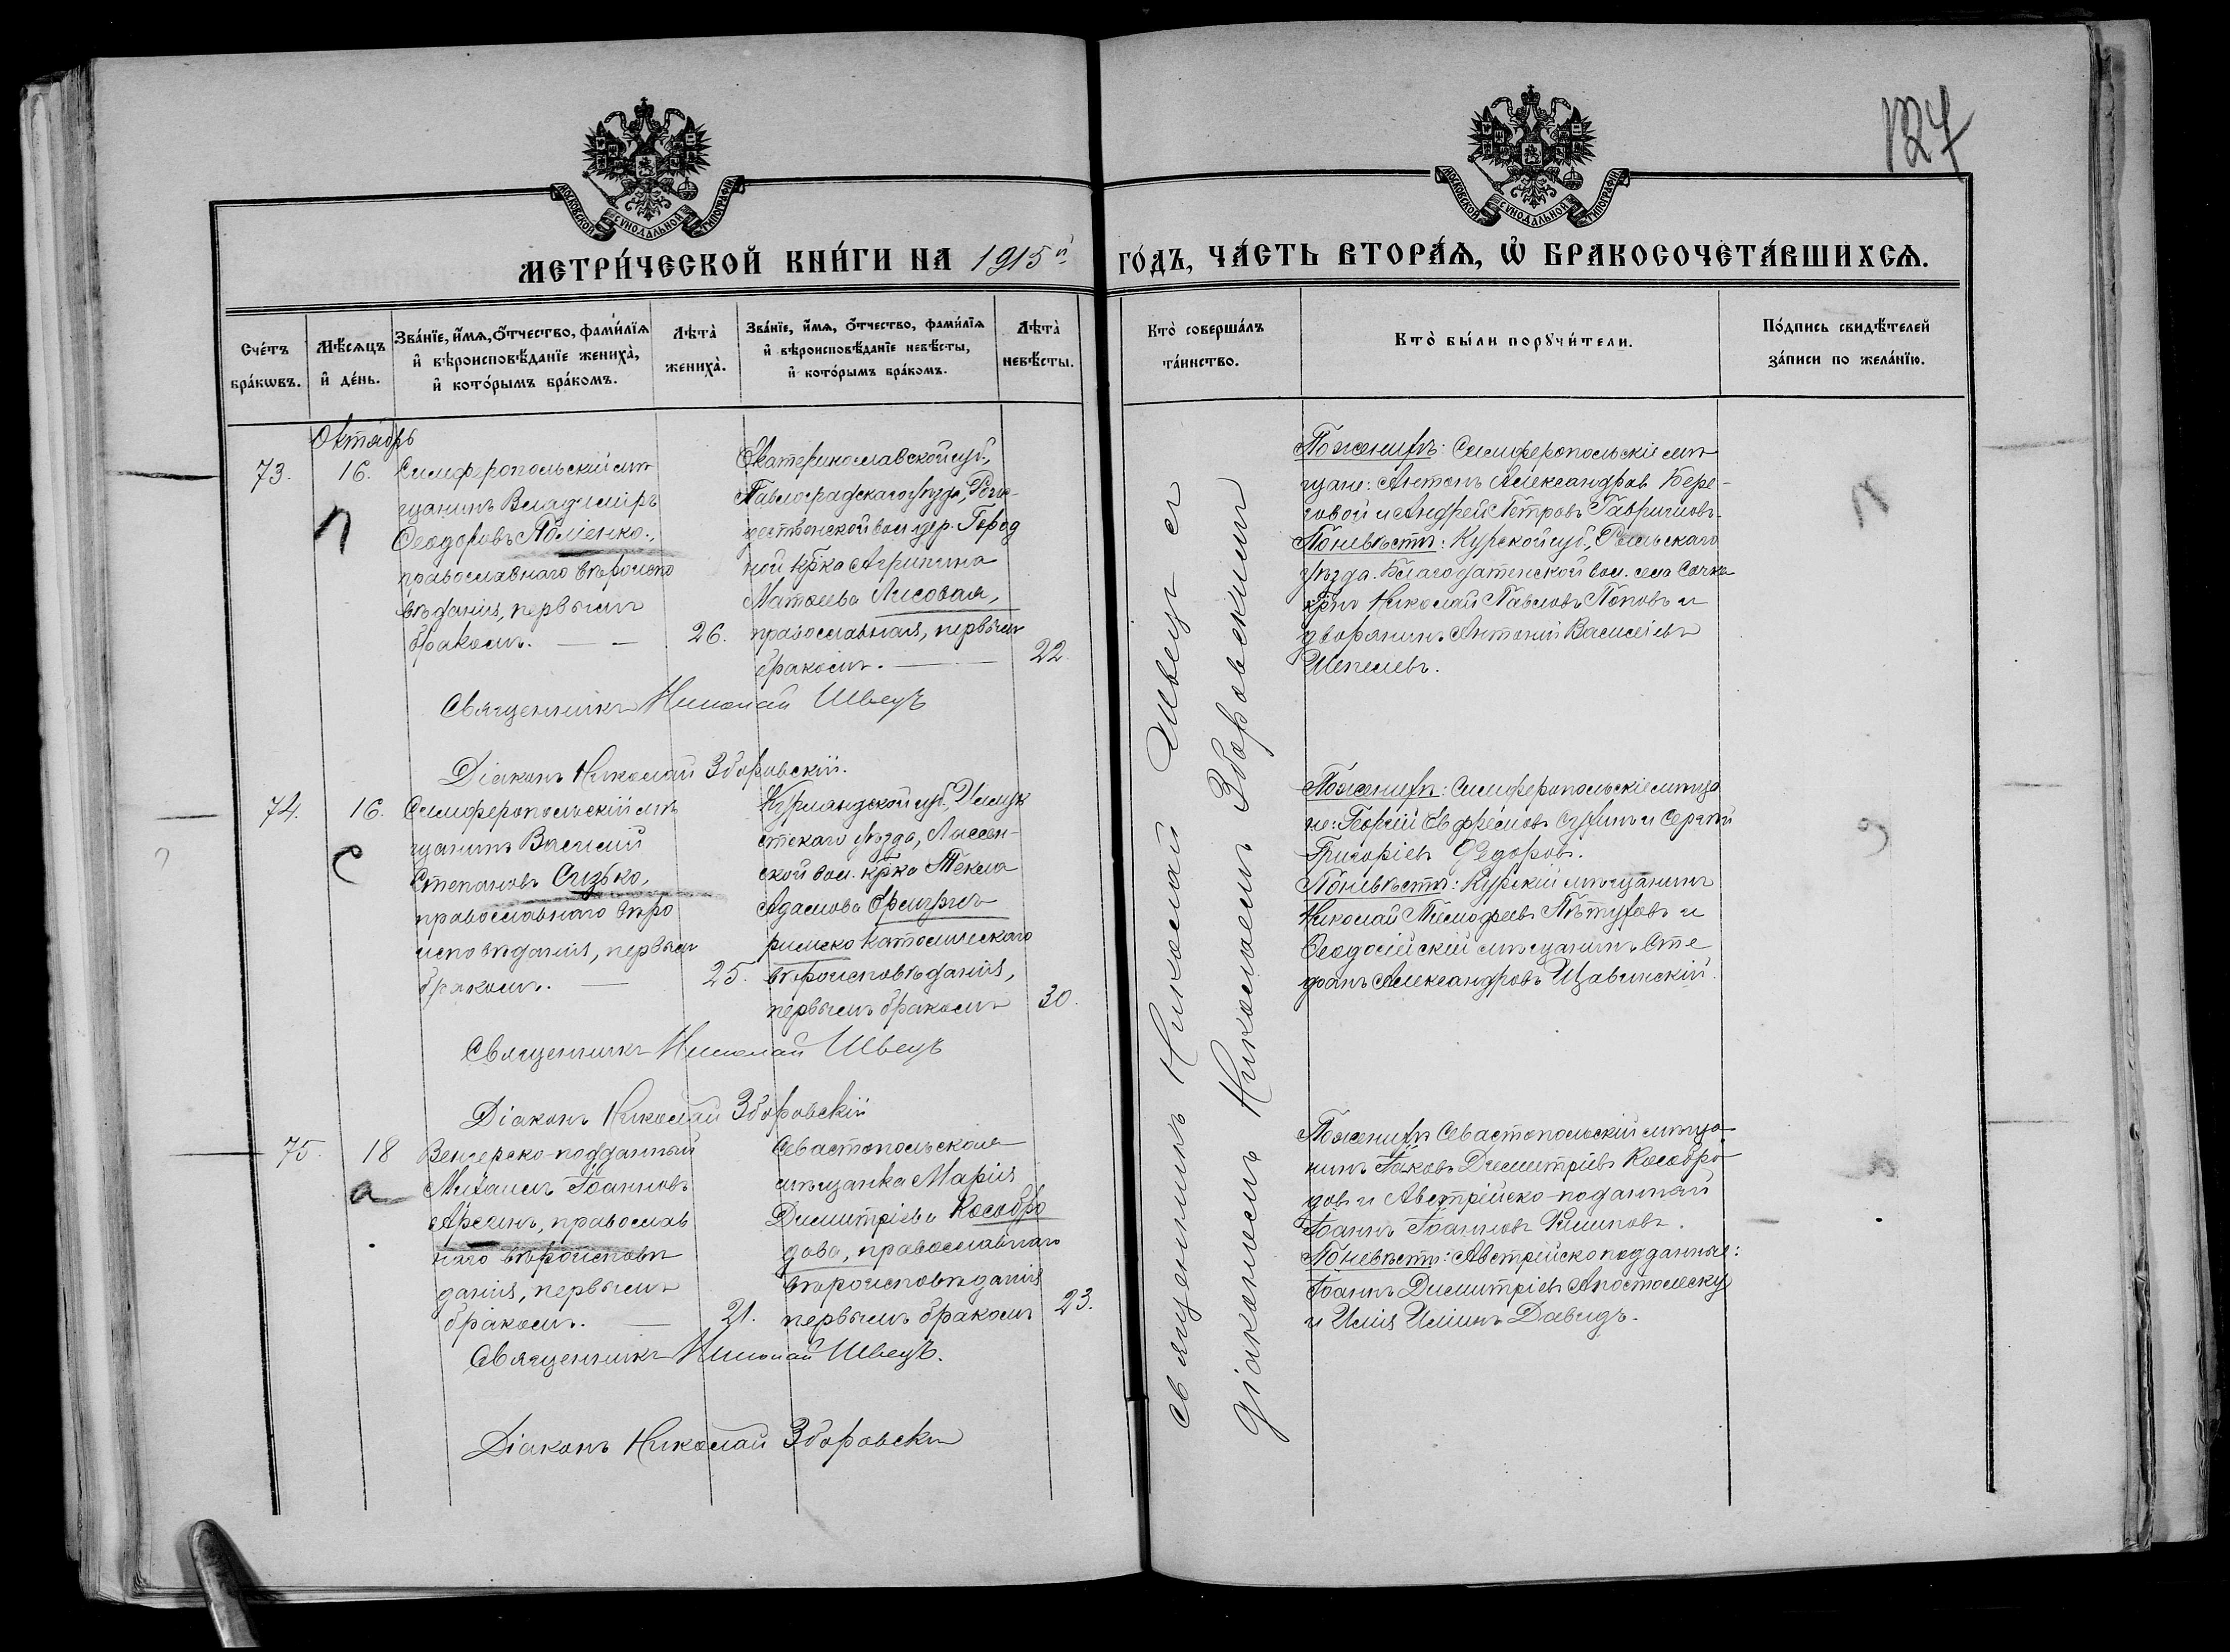 127
МОСКОВСКОЙ СѴНОДАЛЬНОЙ ТИПОГРАФІИ
МОСКОВСКОЙ СѴНОДАЛЬНОЙ ТИПОГРАФІИ
МЕТРИ́ЧЕСКОЙ КНИ́ГИ НА 1915й ГО́ДЪ, ЧА́СТЬ ВТОРА́Ѧ, Ѡ҆ БРАКОСОЧЕТА́ВШИХСѦ.
Сче́тъ
бра́кѡвъ.
Мѣ́сѧцъ
и҆ де́нь.
Зва́нїе, и҆́мѧ, ѻ҆́тчество, фами́лїѧ
и҆ вѣроисповѣ́данїе жениха̀,
и҆ кото́рымъ бра́комъ.
Лѣта̀
жениха̀.
Зва́нїе, и҆́мѧ, ѻ҆́тчество, фами́лїѧ
и҆ вѣроисповѣ́данїе невѣ́сты,
и҆ кото́рымъ бра́комъ.
Лѣта̀
невѣ́сты.
Кто̀ соверша́лъ
та́инство.
Кто̀ бы́ли порꙋчи́тели.
По́дпись свидѣ́телей
за́писи по жела́нїю.
Октябрь
73.
16.
п
Симферопольскій мѣ
щанинъ Владиміръ
Ѳеодоровъ Поліенко.,
православнаго вѣроиспо
вѣданія, первымъ
бракомъ. — —
26.
Екатеринославской губ.,
Павлоградскаго уѣзда, Рож-
дественской вол. дер. Город
ной кр–ка Агрипина
Матѳеева Лисовая,
православная, первымъ
бракомъ. —
22.
Священникъ Николай Швецъ
Діаконъ Николай Зборовскій.
Поженихѣ: Симферопольскіе мѣ
щане: Антонъ Александровъ Бере-
говой и Андрей Петровъ Гавриловъ.
Поневѣстѣ: Курской губ., Рыльскаго
уѣзда. Благодатенской вол. села
кр–нъ Николай Павловъ Поповъ и
дворянинъ Антоній Василіевъ
Шепелевъ.
74.
16.
с
Симферопольскій мѣ
щанинъ Василій
Степановъ Сизько,
православнаго вѣро
исповѣданія, первымъ
бракомъ. —
25.
Курляндской губ., Иллук
стскаго уѣзда,
ской вол. кр–ка Текля
Адамова
римско католическаго
вѣроисповѣданія,
первымъ бракомъ
30.
Священникъ Николай Швецъ
Діаконъ Николай Зборовскій
Поженихѣ: Симферопольскіе мѣща
не: Георгій Евфремовъ и Сергѣй
Григоріевъ Ѳедоровъ.
Поневѣстѣ: Курскій мѣщанинъ
Николай Тимофеевъ Пѣтуховъ и
Ѳеодосійскій мѣщанинъ Сте
фанъ Александровъ Щавинскій.
75.
18
а
Венгерско-подданный
Михаилъ Іоанновъ
Арсинъ, православ
наго вѣроисповѣ
данія, первымъ
бракомъ. —
21.
Севастопольская
мѣщанка Марія
Димитріева Кособро
дова, православнаго
вѣроисповѣданія
первымъ бракомъ
23.
Священникъ Николай Швецъ.
Діаконъ Николай Зборовскій
Поженихѣ Севастопольскій мѣща
нинъ Іаковъ Димитріевъ Кособро
довъ и Австрійско-поданный
Іоаннъ Іоанновъ Климовъ.
Поневѣстѣ: Австрійско подданные:
Іоаннъ Димитріевъ Апостолеску
и Илія Иліинъ Давидъ.
Священникъ Николай Швецъ съ
діакономъ Николаемъ Зборовскимъ